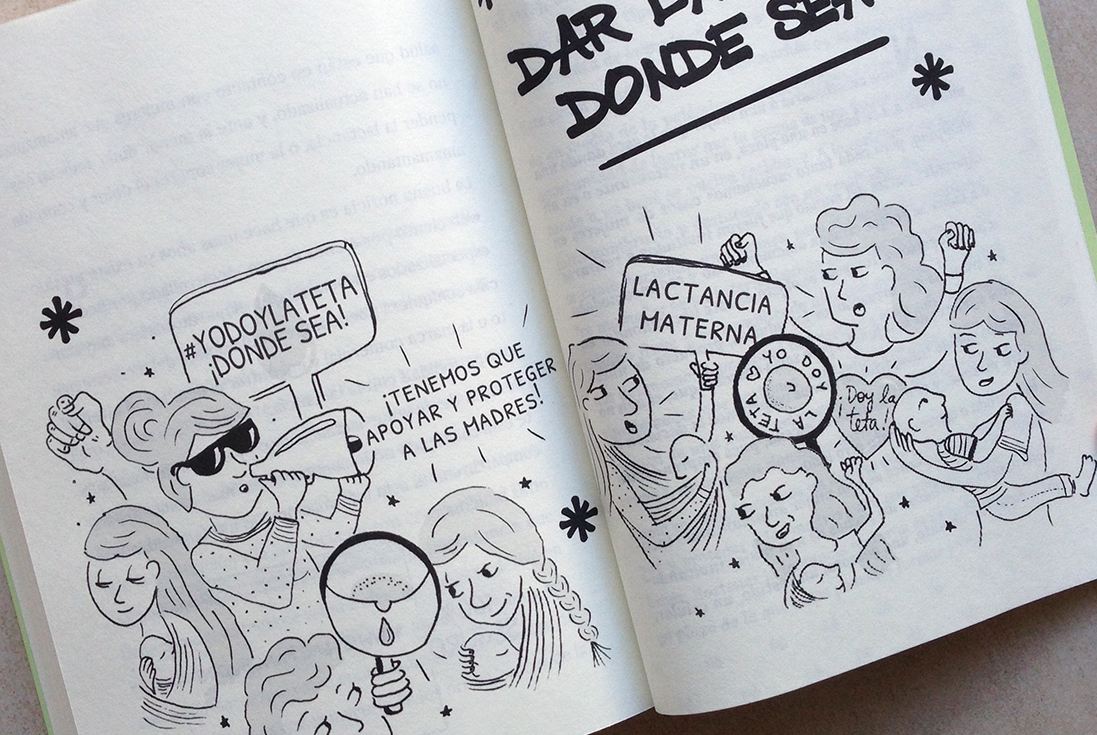 #YODOYLATETA
¡DONDE SEA!
¡TENEMOS QUE
APOYAR Y PROTEGER
A LAS MADRES!
DAR LA
DONDE SEA
LACTANCIA
MATERNA
YO DOY
LA TETA
¡Doy la
teta!